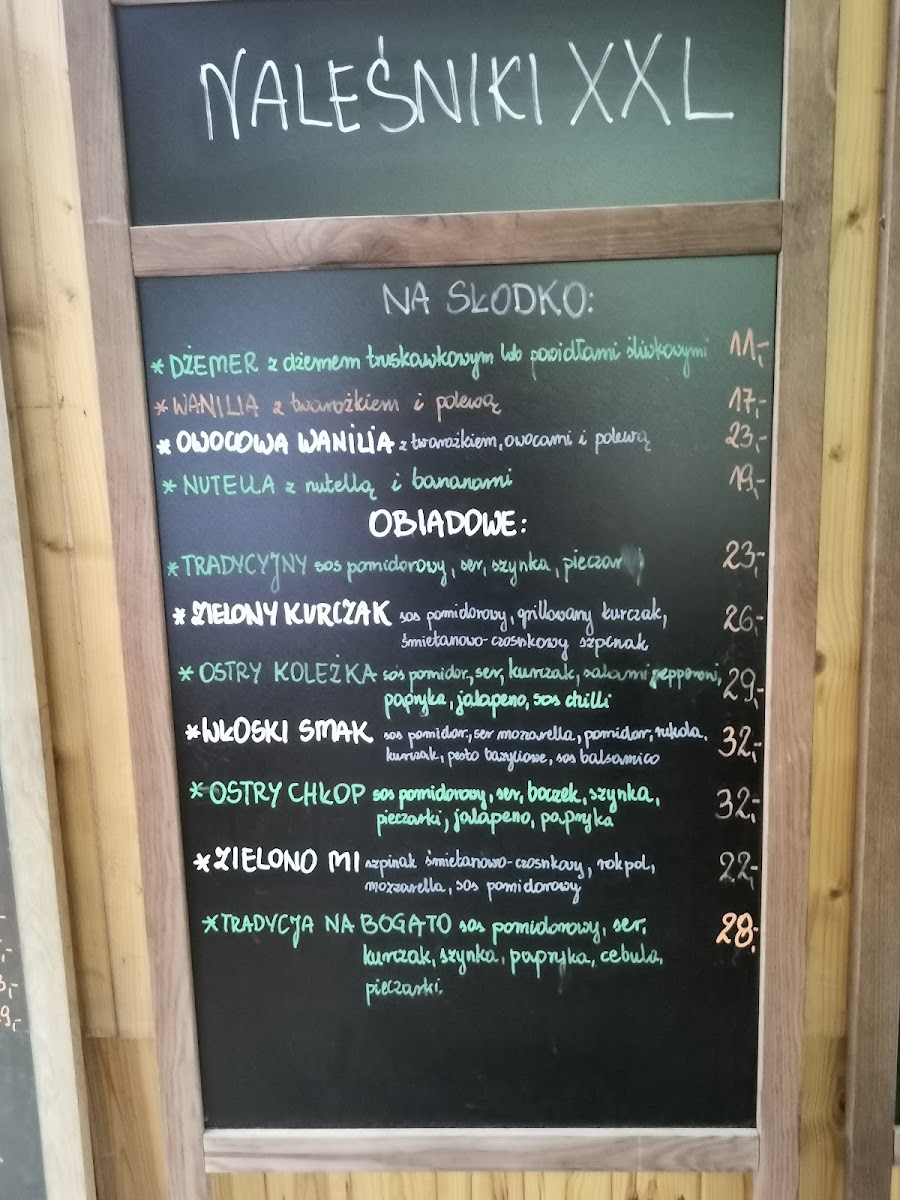 NALEŚNIKI XXL
NA SŁODKO:
* DŻEMER z dżemem truskawkowym lub powidłami śliwkowymi 11,-
* WANILIA z twarożkiem i polewą 17,-
* OWOCOWA WANILIA z twarożkiem, owocami i polewą 23,-
* NUTELLA z nutellą i bananami 19,-
OBIADOWE:
* TRADYCYJNY sos pomidorowy, ser, szynka, pieczar 23,-
* ZIELONY KURCZAK sos pomidorowy, grillowany kurczak, 26,-
śmietanowo-czosnkowy szpinak
* OSTRY KOLEŻKA sos pomidor, ser, kurczak, salami pepperoni, 29,-
papryka, jalapeno, sos chilli
* WŁOSKI SMAK sos pomidor, ser mozzarella, pomidor, rukola, 32,-
kurczak, pesto bazyliowe, sos balsamico
* OSTRY CHŁOP sos pomidorowy, ser, boczek, szynka, 32,-
pieczarki, jalapeno, papryka
* ZIELONO MI szpinak śmietanowo-czosnkowy, rokpol, 22,-
mozzarella, sos pomidorowy
* TRADYCJA NA BOGATO sos pomidorowy, ser, 28,-
kurczak, szynka, papryka, cebula,
pieczarki